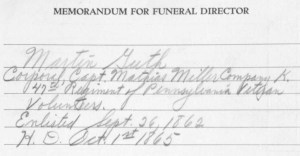 MEMORANDUM FOR FUNERAL DIRECTOR
Martin Guth
Corporal Capt. Mathias Mills Company K.
47th Regiment of Pennsylvania Veteran
Volunteers.
Enlisted Sept. 26, 1862
H. D. Oct 1st 1865